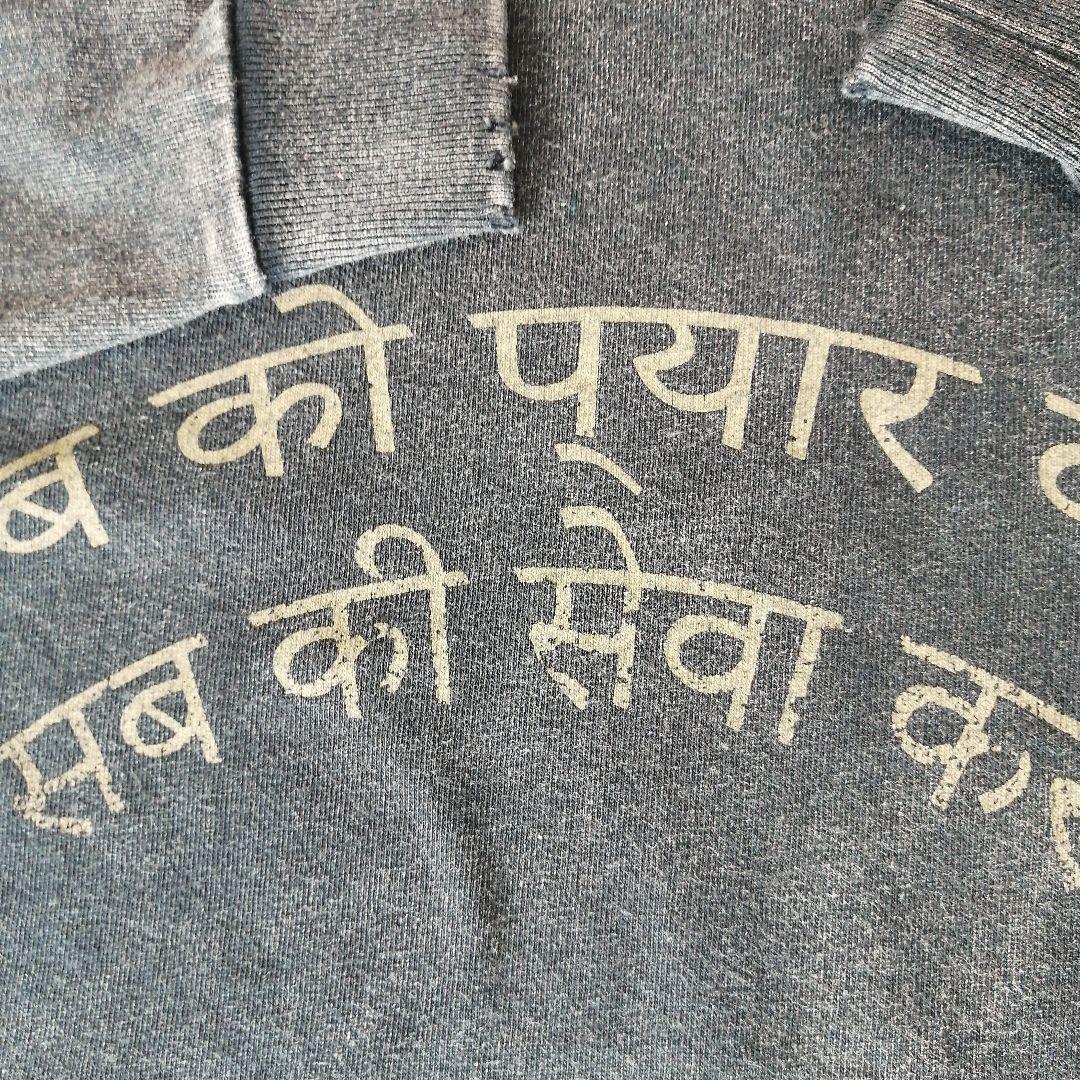 ब को प्‌यार क
सब की सेवा कर